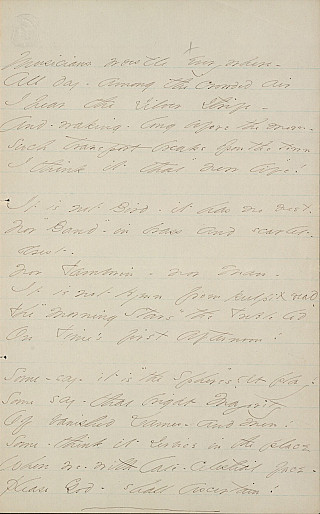 Musicians wrestle Everywhere -
All day - among the crowded air
I hear the silver strife -
And - waking - long before the morn -
Such transport breaks upon the town
I think it that "New life"!
It is not Bird - it has no nest -
Nor "Band" - in brass and scarlet -
drest -
Nor Tamborin - nor Man -
It is not Hymn from pulpit read -
The "Morning Stars" the Treble led
On Time's first Afternoon!
Some - say - it is "the Spheres" - at play!
Some say - that bright Majority
Of vanished Dames - and Men!
Some - think it service in the place
Where we - with late - celestial face -
Please God - shall ascertain!